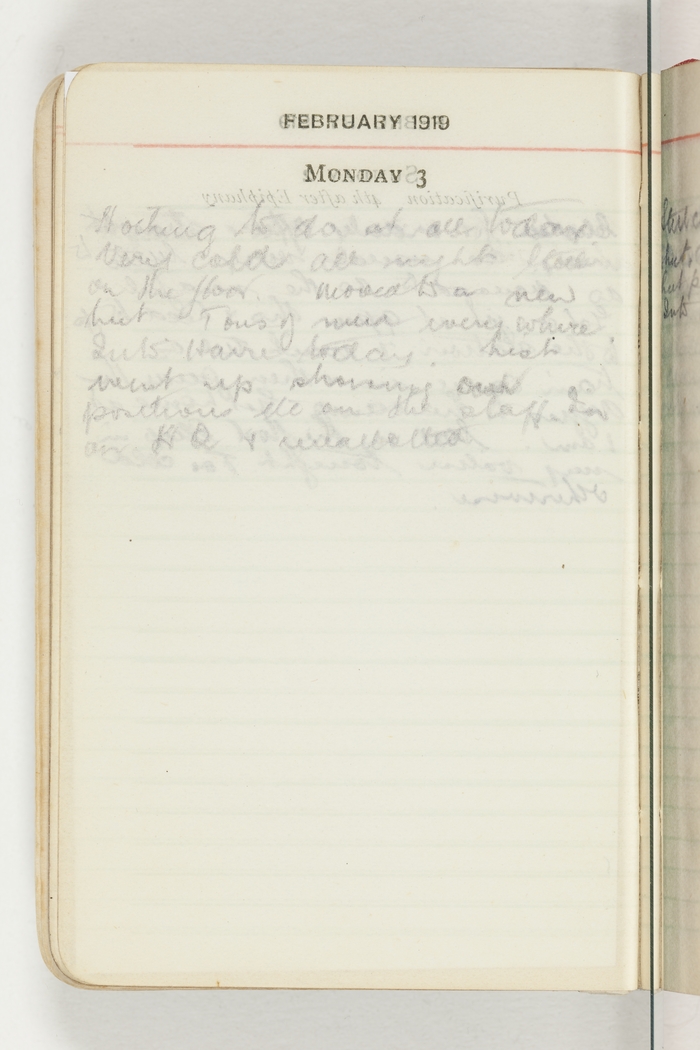 FEBRUARY 1919
MONDAY 3
Nothing to do at all today
Very cold all night
on the floor. Moved to a new
hut Tons of mud everywhere
Into Havre today. List
went up showing our
positions etc on the staff
on H Q